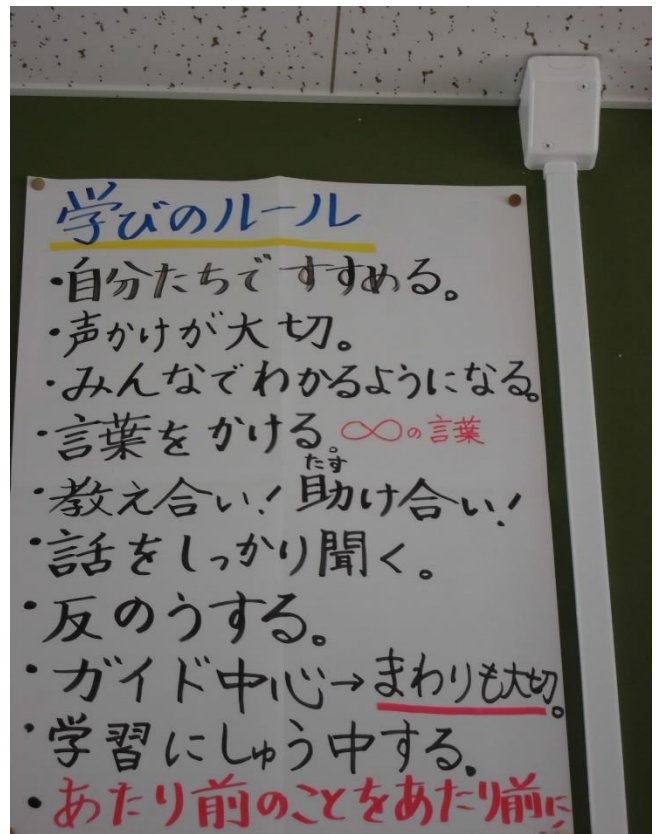 学びのルール
・自分たちですすめる。
・声かけが大切。
・みんなでわかるようになる。
・言葉をかける。∞の言葉
たす
・教え合い!助け合い!
・話をしっかり聞く。
・反のうする。
・ガイド中心→まわりも大切。
・学習にしゅう中する。
・あたり前のことをあたり前に